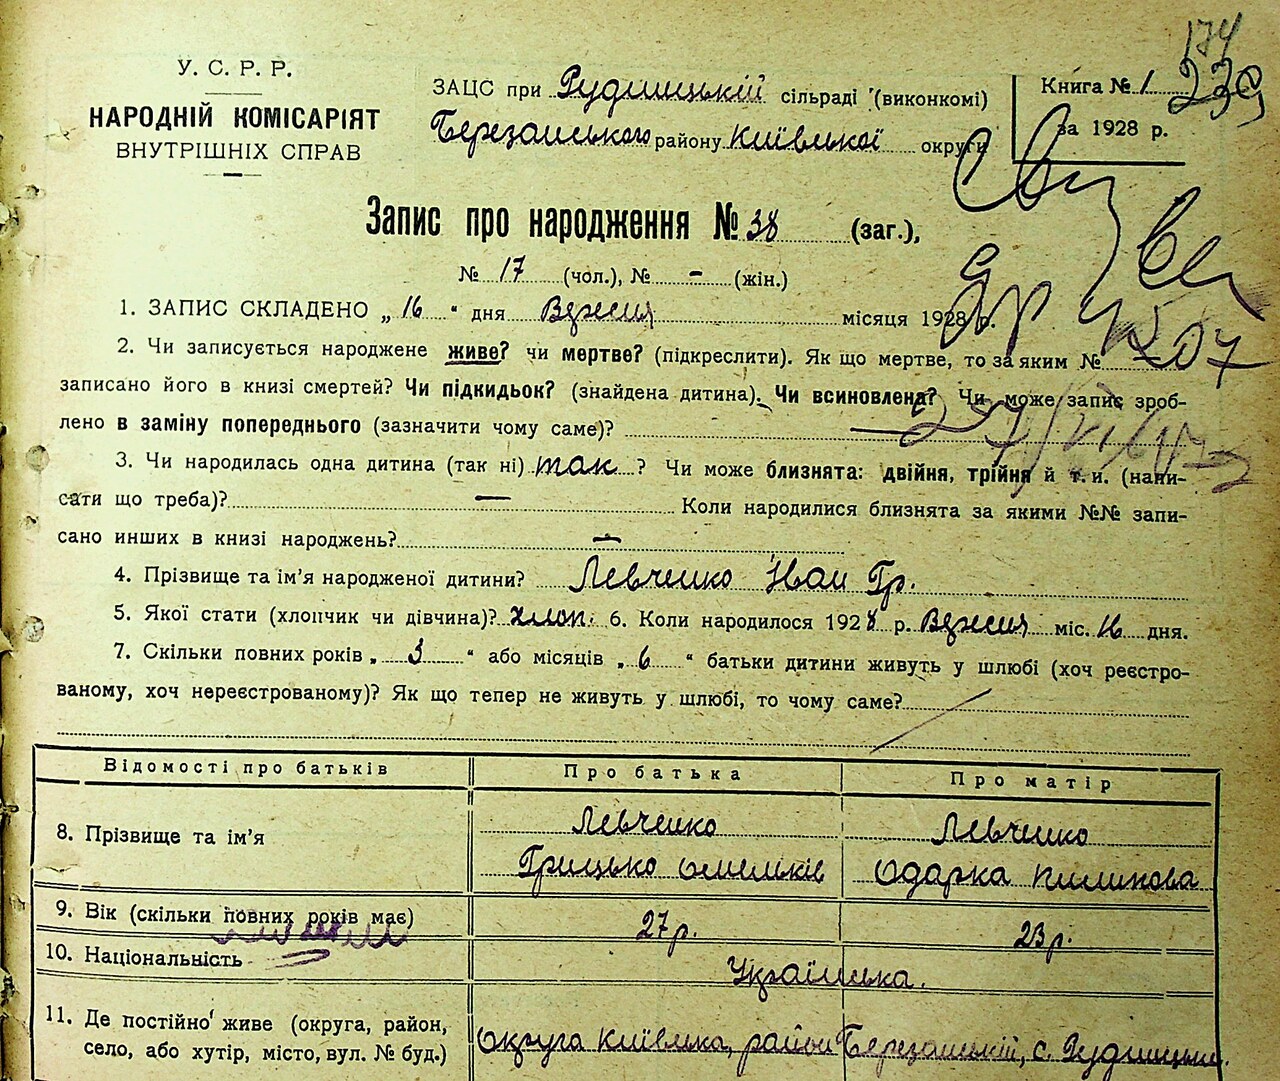 174
У. С. Р. Р.
НАРОДНІЙ КОМІСАРІЯТ
ВНУТРІШНІХ СПРАВ
ЗАЦС при Рудницькій сільраді (виконкомі)
Березанського району Київської округи
Книга № 1 239
за 1928 р.
Запис про народження № 38 (заг.),
№ 17 (чол.), № – (жін.)
1. ЗАПИС СКЛАДЕНО „ 16 “ дня Вересня місяця 1928 р.
2. Чи записується народжене живе? чи мертве? (підкреслити). Як що мертве, то за яким №
записано його в книзі смертей? Чи підкидьок? (знайдена дитина). Чи всиновлена? Чи може запис зроб-
лено в заміну попереднього (зазначити чому саме)?
3. Чи народилась одна дитина (так ні) так ? Чи може близнята: двійня, трійня й т. и. (напи-
сати що треба)? — Коли народилися близнята за якими №№ запи-
сано инших в книзі народжень? —
4. Прізвище та ім’я народженої дитини? Левченко Іван Гр.
5. Якої стати (хлопчик чи дівчина)? хлоп. 6. Коли народилося 1928 р. Вересня міс. 16 дня.
7. Скільки повних років „ 3 “ або місяців „ 6 “ батьки дитини живуть у шлюбі (хоч реєстро-
ваному, хоч нереєстрованому)? Як що тепер не живуть у шлюбі, то чому саме?
Відомості про батьків Про батька Про матір
8. Прізвище та ім’я Левченко Левченко
Грицько Омельків Одарка Пилипова
9. Вік (скільки повних років має) 27 р. 23 р.
10. Національність Українська.
11. Де постійно живе (округа, район,
село, або хутір, місто, вул. № буд.) Округа Київська, район Березанський, с. Рудницьке.